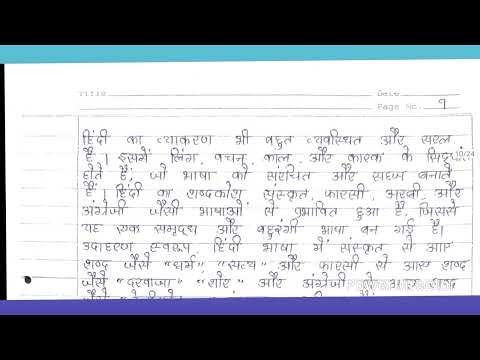 TITLE
Date
Page No. 9
हिंदी का व्याकरण भी बहुत व्यवस्थित और सरल
है। इसमें लिंग, वचन, काल, और कारक के चिह्न
होते हैं, जो भाषा को संरचित और सहज बनाते
हैं। हिंदी का शब्दकोश संस्कृत, फारसी, अरबी, और
अंग्रेजी जैसी भाषाओं से प्रभावित हुआ है, जिससे
यह एक समृद्ध और बहुरंगी भाषा बन गई है।
उदाहरण स्वरूप, हिंदी भाषा में संस्कृत से आए
शब्द जैसे "धर्म", "सत्य" और फारसी से आए शब्द
जैसे "दरवाजा" "शोर" और अंग्रेजी से आए शब्द